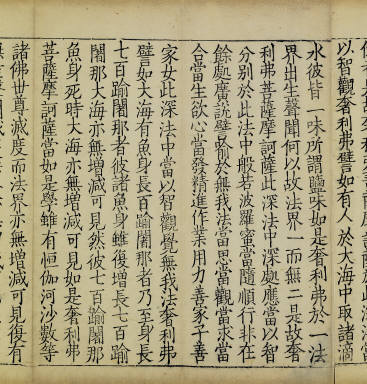 以智觀奢利弗譬如有人於大海中取諸滴
水彼皆一味所謂鹽味如是奢利弗於一法
界出生聲聞何以故法界一而無二是故奢
利弗菩薩摩訶薩此深法中深處應當以智
分別於此法中般若波羅蜜當隨順行非在
餘處廣說譬喻於無我法當思當觀當求當
合當生欲心當發精進作業用力善家子善
家女此深法中當以智觀覺無我法奢利弗
譬如大海有魚身長百踰闍那者乃至身長
七百踰闍那者彼諸魚身雖復增長七百踰
闍那大海亦無增減可見然彼七百踰闍那
魚身死時大海亦無增減可見如是奢利弗
菩薩摩訶薩當如是學雖有恒伽河沙數等
諸佛世尊滅度而法界亦無增減可見復有